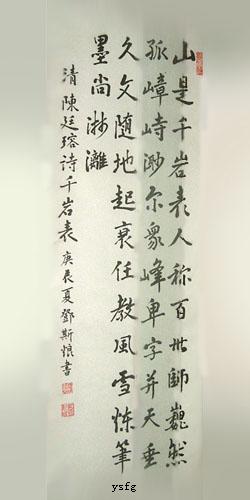 山是千岩表人称百世師巍然
孤嶂峙渺尔眾峰卑字并天垂
久文随地起衰任教風雪煉筆
墨尚淋灕
清陳廷瑢诗千岩表 庚辰夏鄧斯悢書
ysfg